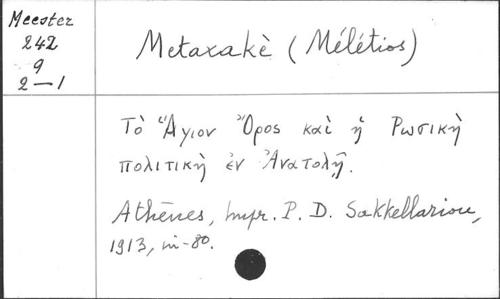 Meester
242
9
2—1
Metaxakè (Mélétios)
Τὸ Ἅγιον Ὄρος καὶ ἡ Ρωσικὴ
πολιτικὴ ἐν Ἀνατολῇ.
Athènes, Impr. P. D. Sakkellariou,
1913, in-8o.